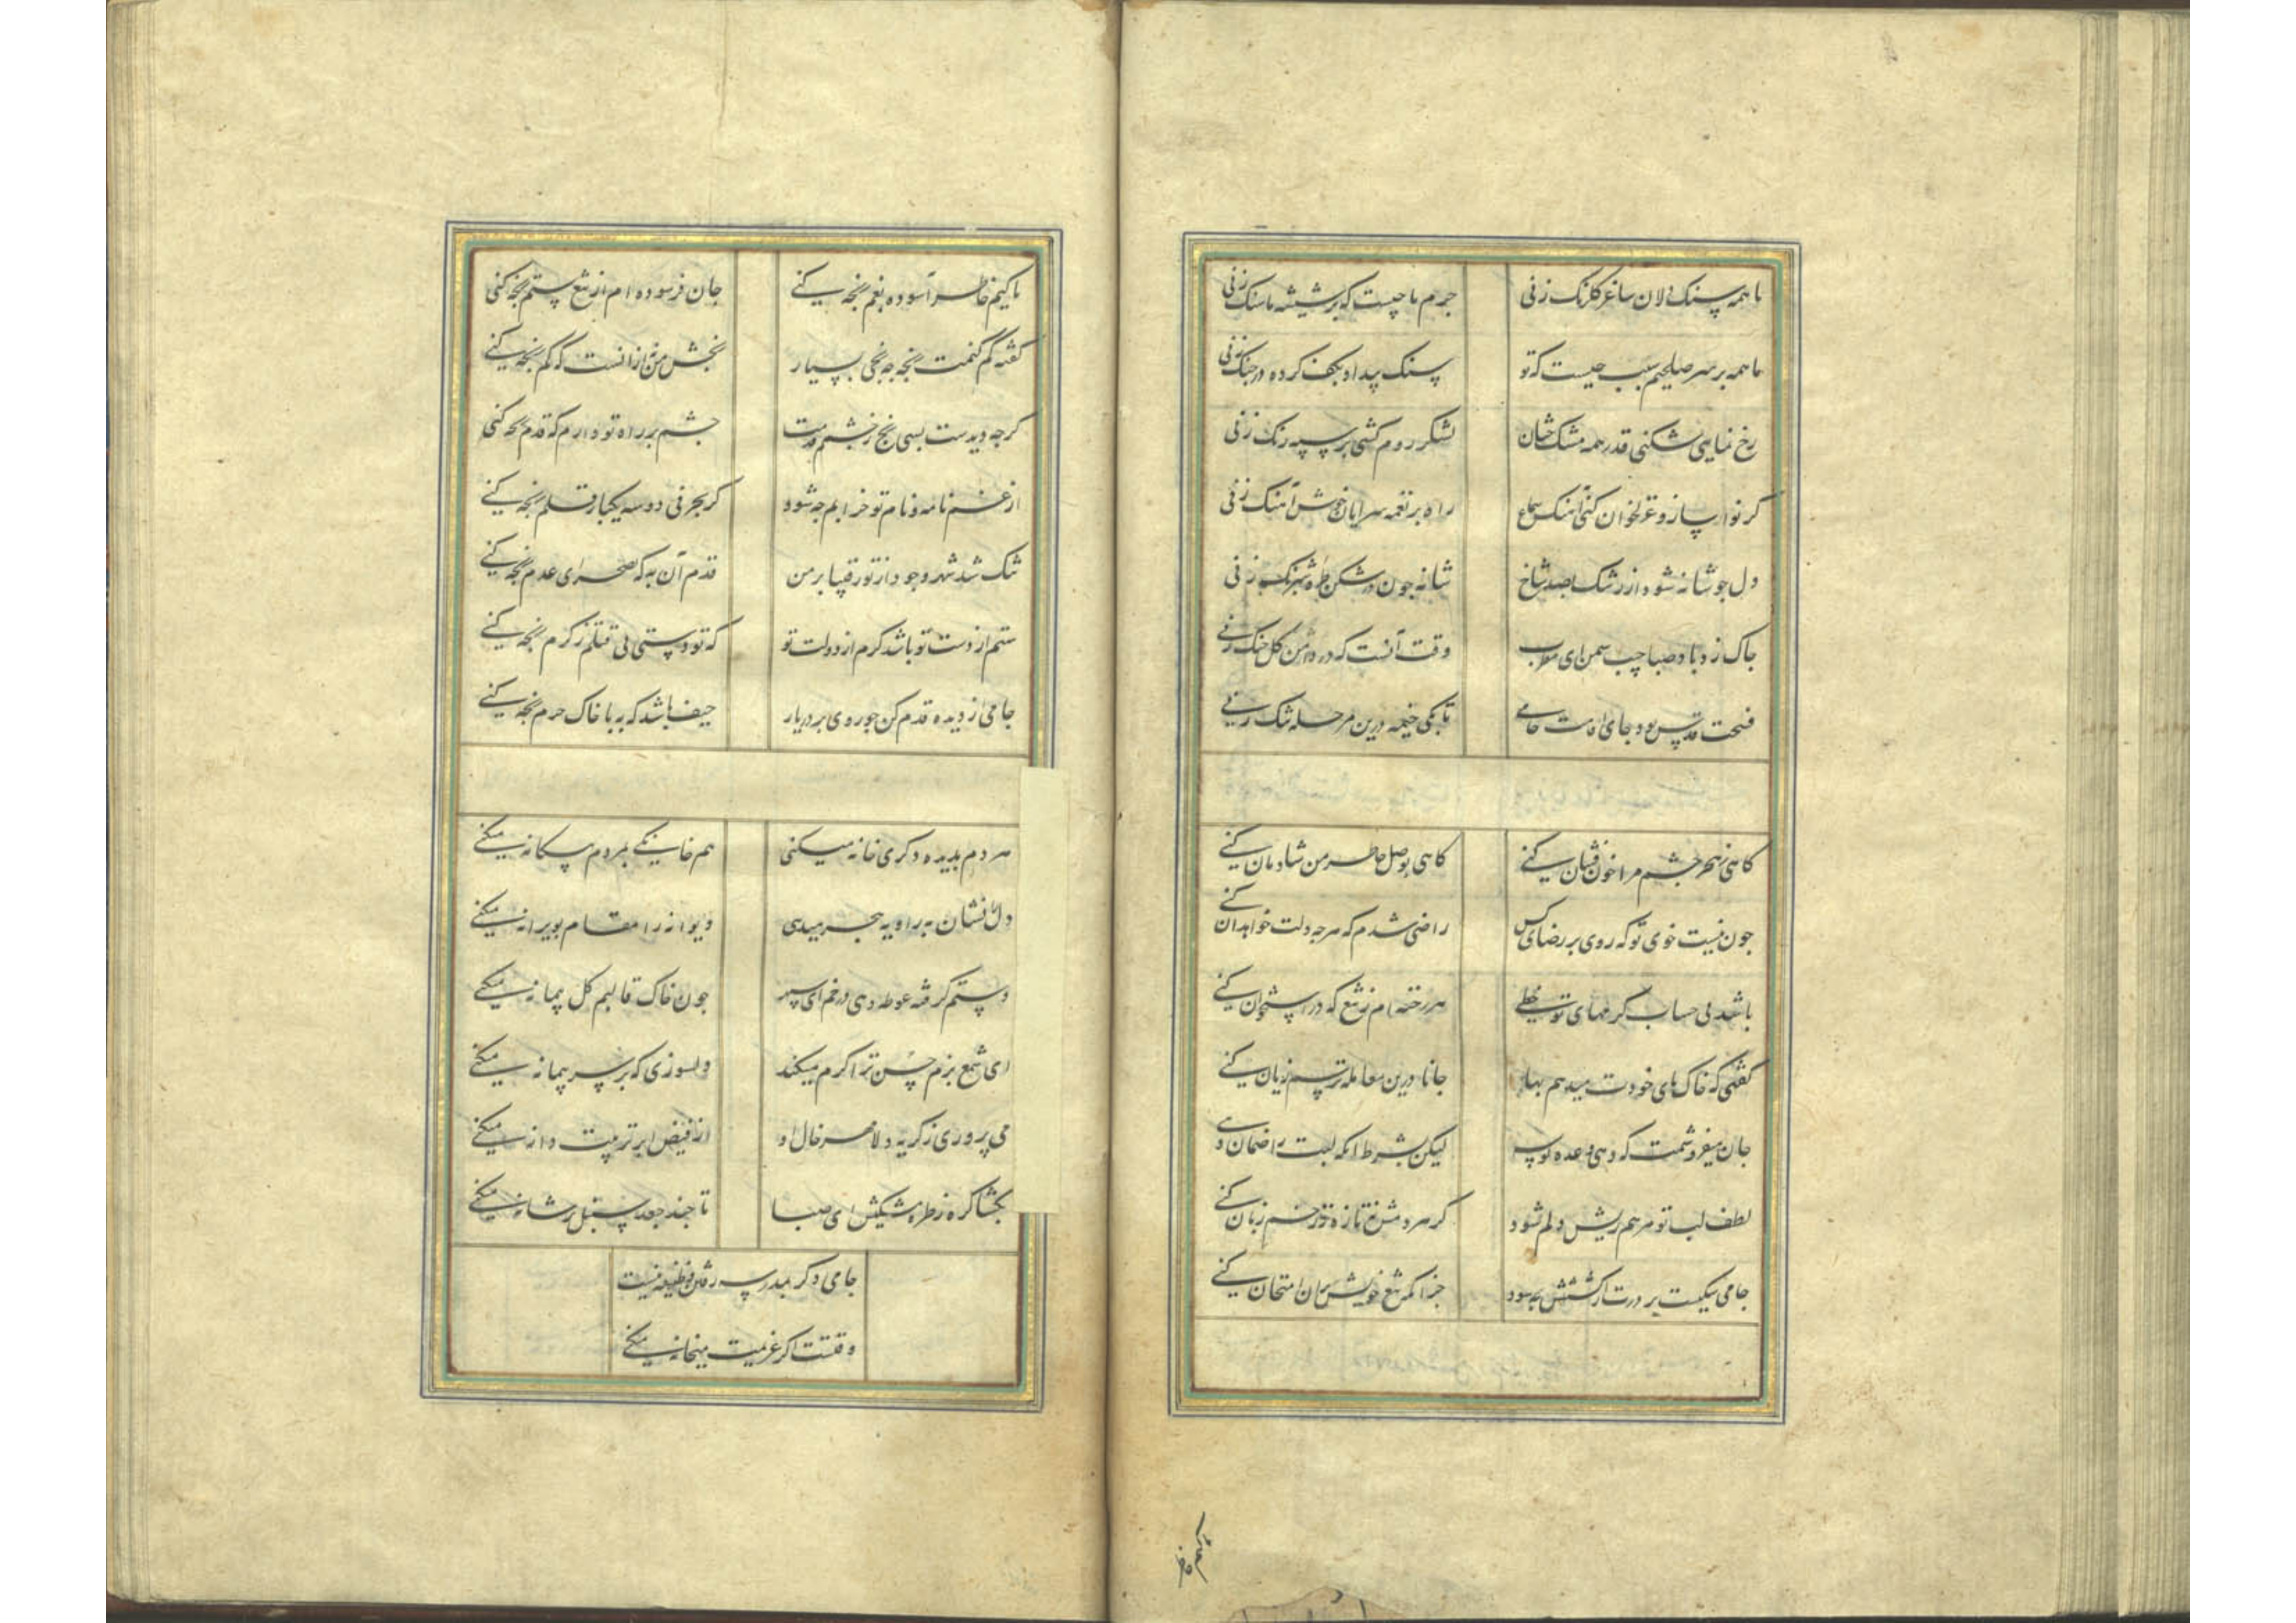 با همه سنک دلان ساغر کلرنک زنی جرم ما چیست که بر شیشه ما سنک زنی
ما همه بر سر صلحیم سبب چیست که تو سنک بیداد بکف کرده در جنک زنی
رخ نمایی شکنی قدر همه مشک خطان لشکر روم کشی بر سپه زنک زنی
کر نوا ساز و غزلخوان کنی آهنک سماع راه بر نغمه سرایان خوش آهنک زنی
دل چو شانه شود از رشک بصد شاخ شانه چون در شکن طره شبرنک زنی
چاک زد باد صبا جیب سمن ای مطرب وقت آنست که در دامن کل چنک زنی
فسحت قدس بود جای اقامت جامی تا بکی خیمه درین مرحله تنک زنی
کاهی بهجر چشم مرا خون فشان کنی کاهی بوصل خاطر من شادمان کنی
چون نیست خوی تو که روی بر رضای کس راضی شدم که هر چه دلت خواهد آن کنی
باشد پی حساب کرمهای تو خطی هر رخنه ام ز تیغ که در استخوان کنی
کفتی که خاک پای خودت میدهم بها جانا درین معامله ترسم زیان کنی
جان میفروشمت که دهی وعده بوسه لیکن بشرط آنکه لبت را ضمان دهی
لطف لب تو مرهم ریش دلم شود کر هر دمش نه تازه بزخم زبان کنی
جامی سکیست بر درت ار کشتنش چه سود جز آنکه تیغ خویش بر آن امتحان کنی
تا کیم خاطر آسوده بغم رنجه کنی جان فرسوده ام از تیغ ستم رنجه کنی
کفته کم کنمت رنجه چه رنجی بسیار رنجش من ز آنست که کم رنجه کنی
کرچه دیدست بسی رنج ز خشم قدمت چشم بر راه تو دارم که قدم رنجه کنی
از غم نامه و نام تو خرابم چه شود کر بحرفی دو سه یکبار قلم رنجه کنی
تنک شد شهر وجود از تو رقیبا بر من قدم آن به که بصحرای عدم رنجه کنی
ستم از دست تو باشد کرم از دولت تو که تو دستی پی قتلم ز کرم رنجه کنی
جامی از دیده قدم کن چو روی بر در یار حیف باشد که بپا خاک حرم رنجه کنی
مردم بدیده دکری خانه میکنی هم خانکی بمردم بیکانه میکنی
دل را نشان بزاویه هجر میدهی دیوانه را مقام بویرانه میکنی
دستم کرفته غوطه دهی در خم ای سپهر چون خاک قالبم کل پیمانه میکنی
ای شمع بزم حسن ترا کرم میکند دلسوزی که بر سر پروانه میکنی
می پروری ز کریه دلا مهر خال او از فیض ابر تربیت دانه میکنی
بکشا کره ز طره مشکینش ای صبا تا چند جعد سنبل تر شانه میکنی
جامی دکر بمدرسه رفتن وظیفه نیست
وقتست اکر عزیمت میخانه میکنی